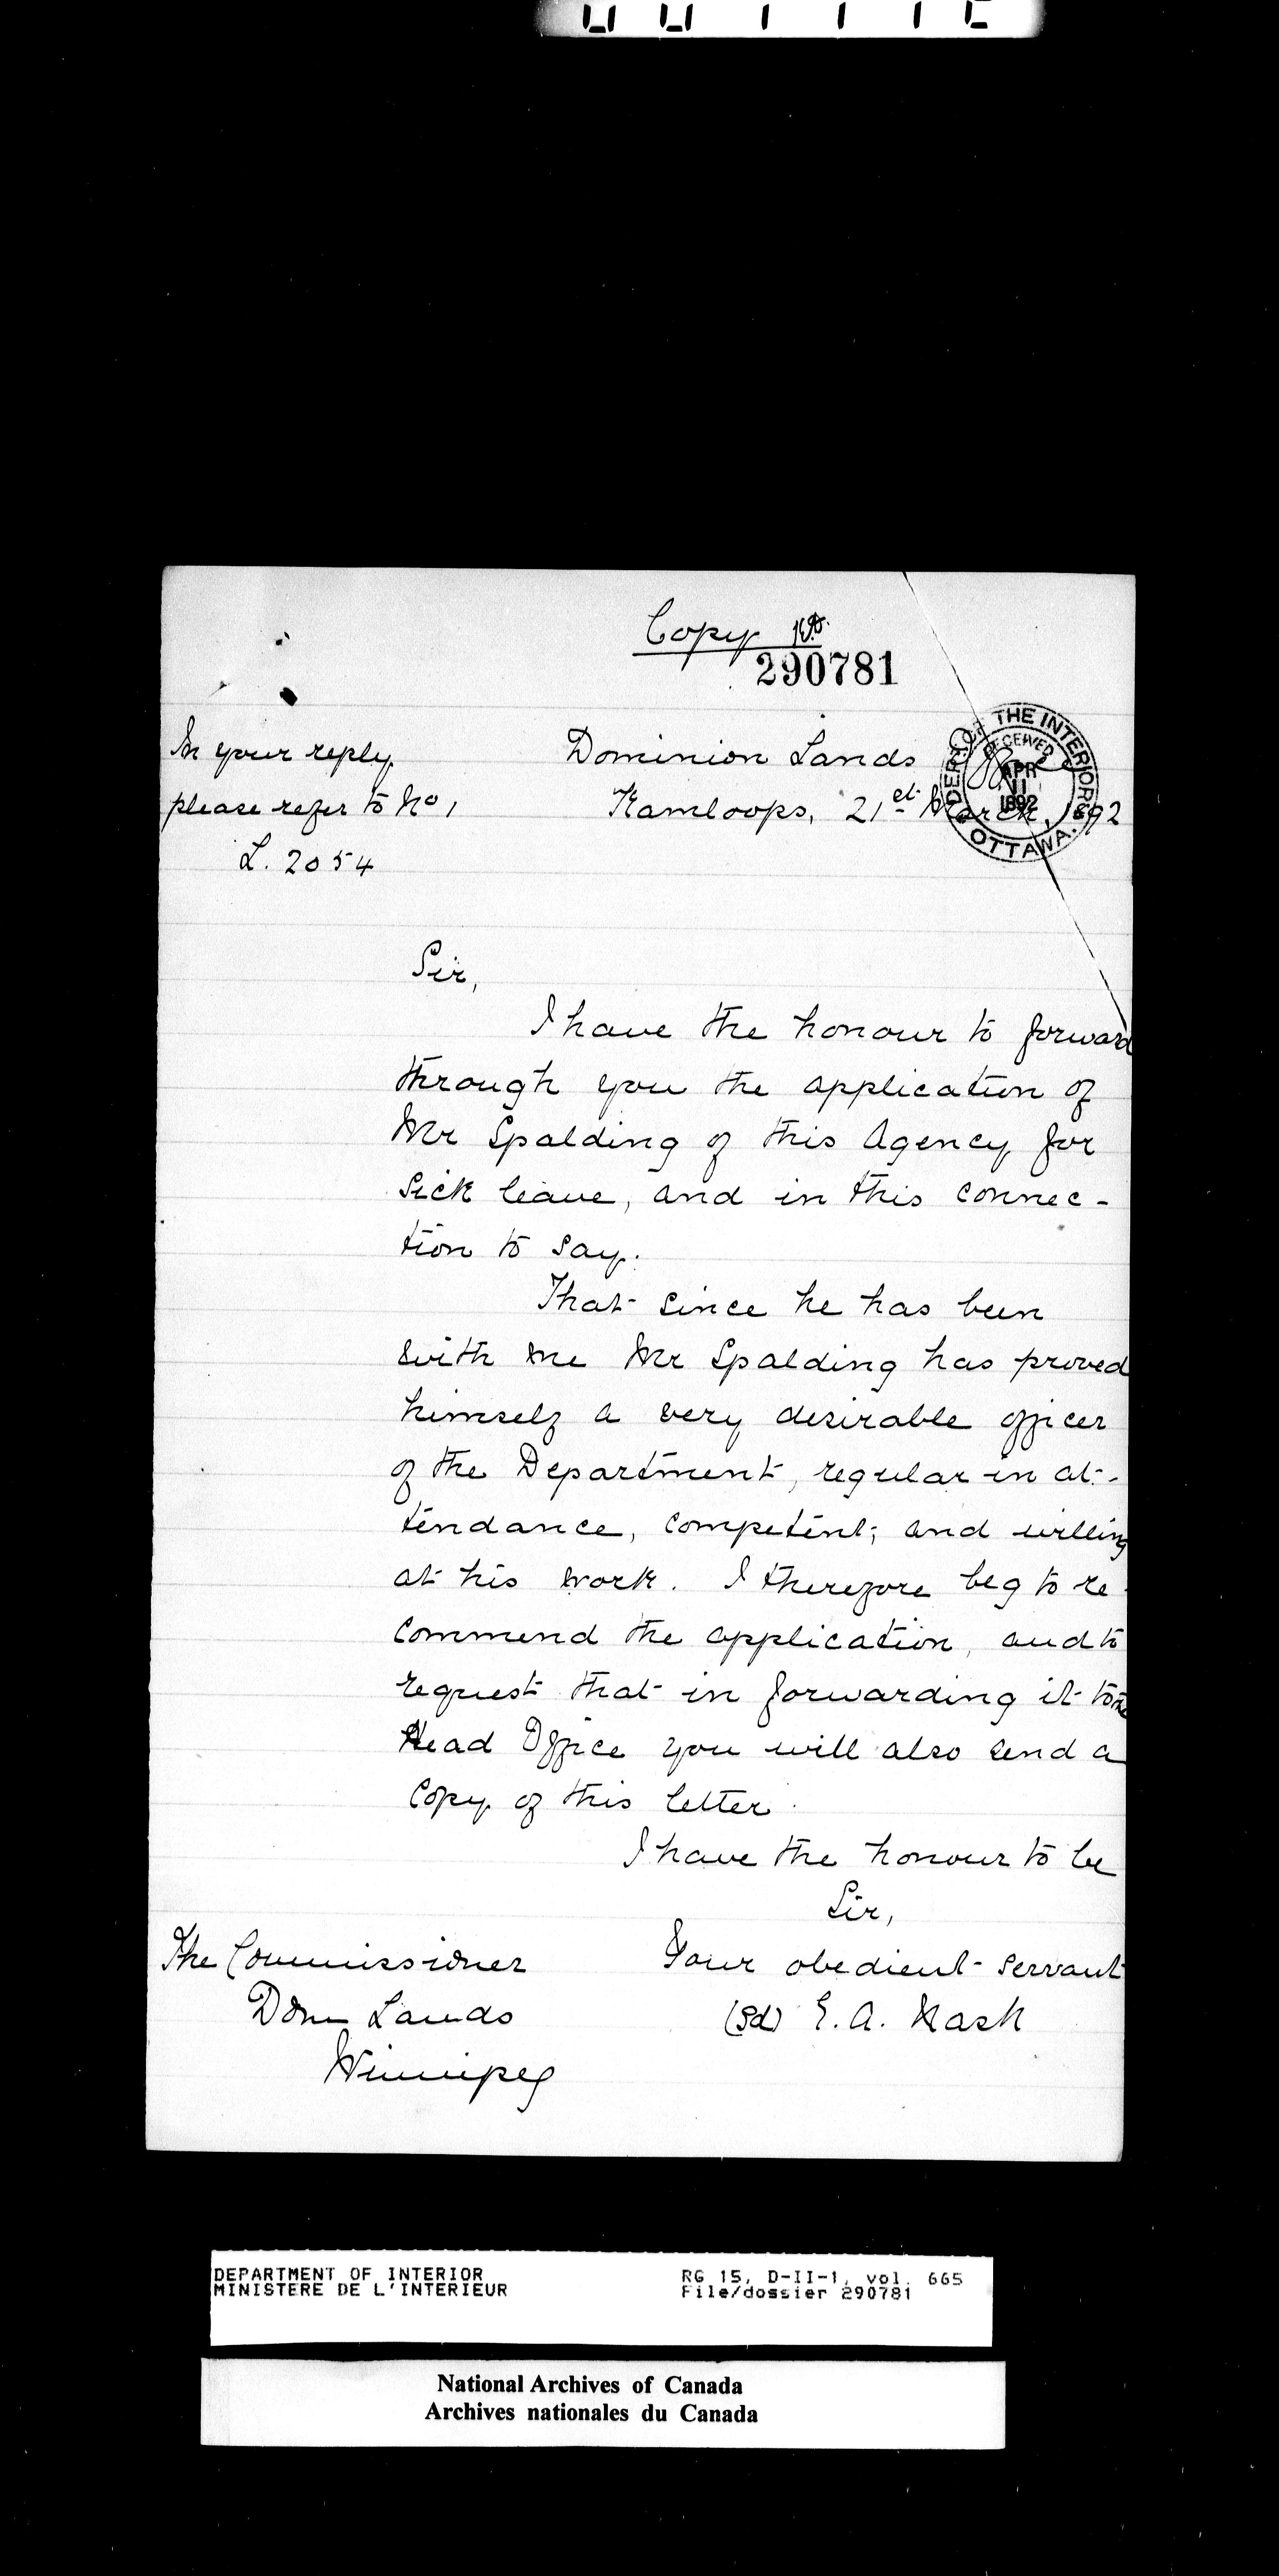 Copy
290781
In your reply
please refer to No 1
L. 2054
Dominion Lands
Kamloops, 21st March, 1892
DEP. OF THE INTERIOR
RECEIVED
APR
11
1892
OTTAWA.
Sir,
I have the honour to forward
through you the application of
Mr Spalding of this Agency for
Sick leave, and in this connec-
tion to say.
That since he has been
with me Mr Spalding has proved
himself a very desirable officer
of the Department, regular in at-
tendance, competent, and willing
at his work. I therefore beg to re
commend the application, and to
request that in forwarding it to the
Head Office you will also send a
copy of this letter.
I have the honour to be
Sir,
Your obedient servant
(Sd) E. A. Nash
The Commissioner
Dom Lands
Winnipeg
DEPARTMENT OF INTERIOR
MINISTERE DE L'INTERIEUR
RG 15, D-II-1, vol. 665
File/dossier 290781
National Archives of Canada
Archives nationales du Canada